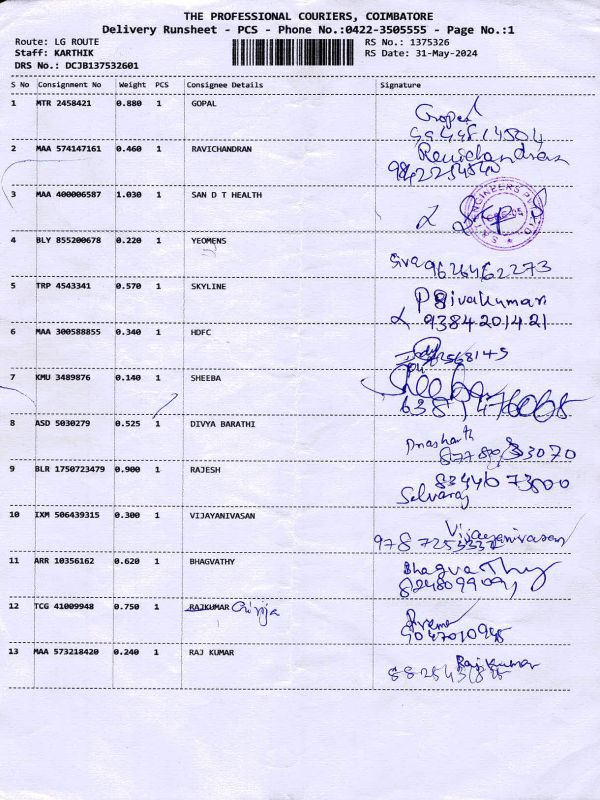 THE PROFESSIONAL COURIERS, COIMBATORE
Delivery Runsheet - PCS - Phone No.:0422-3505555 - Page No.:1
Route: LG ROUTE RS No.: 1375326
Staff: KARTHIK RS Date: 31-May-2024
DRS No.: DCJB137532601
S No Consignment No Weight PCS Consignee Details Signature
1 MTR 2458421 0.880 1 GOPAL Gopal
2 MAA 574147161 0.460 1 RAVICHANDRAN Ravichandran
9842254540
3 MAA 400006587 1.030 1 SAN D T HEALTH
4 BLY 855200678 0.220 1 YEOMENS Siva 9626462273
5 TRP 4543341 0.570 1 SKYLINE P Sivakumar
9384201421
6 MAA 300588855 0.340 1 HDFC
7 KMU 3489876 0.140 1 SHEEBA Sheeba
8 ASD 5030279 0.525 1 DIVYA BARATHI Prashanth
9 BLR 1750723479 0.900 1 RAJESH 8344073800
Selvaraj
10 IXM 506439315 0.300 1 VIJAYANIVASAN Vijayanivasan
11 ARR 10356162 0.620 1 BHAGVATHY Bhagvathy
12 TCG 41009948 0.750 1 RAJKUMAR Girija
13 MAA 573218420 0.240 1 RAJ KUMAR Raj Kumar